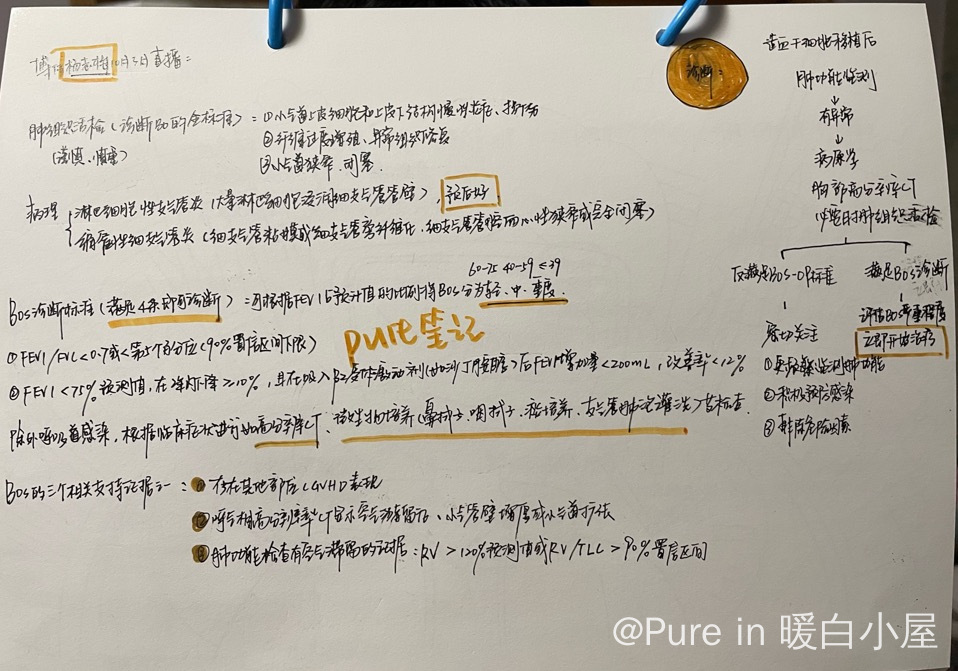 10月5日直播：
诊断：
肺组织活检（诊断BO的金标准）：①小气道上皮细胞和上皮下结构慢性炎症、损伤
（谨慎、慎重）
②纤维过度增殖、异常组织修复
③小气道狭窄、闭塞
病理 淋巴细胞性细支气管炎（大量淋巴细胞浸润细支气管管壁），预后好
缩窄性细支气管炎（细支气管粘膜或细支气管旁纤维化，细支气管管腔向心性狭窄或完全闭塞）
60-75 40-59 ≤39
BOS诊断标准（满足4条即可诊断）：可根据FEV1占预计值的比例将BOS分为轻、中、重度
pure笔记
①FEV1/FVC<0.7或<第5个百分位（90%置信区间下限）
②FEV1<75%预测值，在 年下降≥10%，且在吸入β2受体激动剂（如沙丁胺醇）后FEV1增加量<200mL，改善率<12%
除外呼吸道感染，根据临床症状进行如高分辨率CT、微生物培养（鼻拭子、咽拭子、痰培养、支气管肺泡灌洗）等检查
BOS的三个相关支持证据之一：①存在其他部位cGVHD表现
②呼气相高分辨率CT显示空气滞留、小气管壁增厚或小气道扩张
③肺功能检查有空气滞留的证据：RV>120%预测值或RV/TLC>90%置信区间
造血干细胞移植后
肺功能监测
↓
有异常
↓
病原学
胸部高分辨CT
必要时肺组织活检
仅满足BOS-0P标准 满足BOS诊断
↓
密切关注
①每 监测肺功能
②积极预防感染
③排除危险因素
评估BOS严重程度
立即开始治疗
@Pure in 暖白小屋